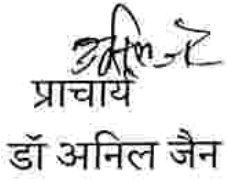 प्राचार्य
डॉ अनिल जैन